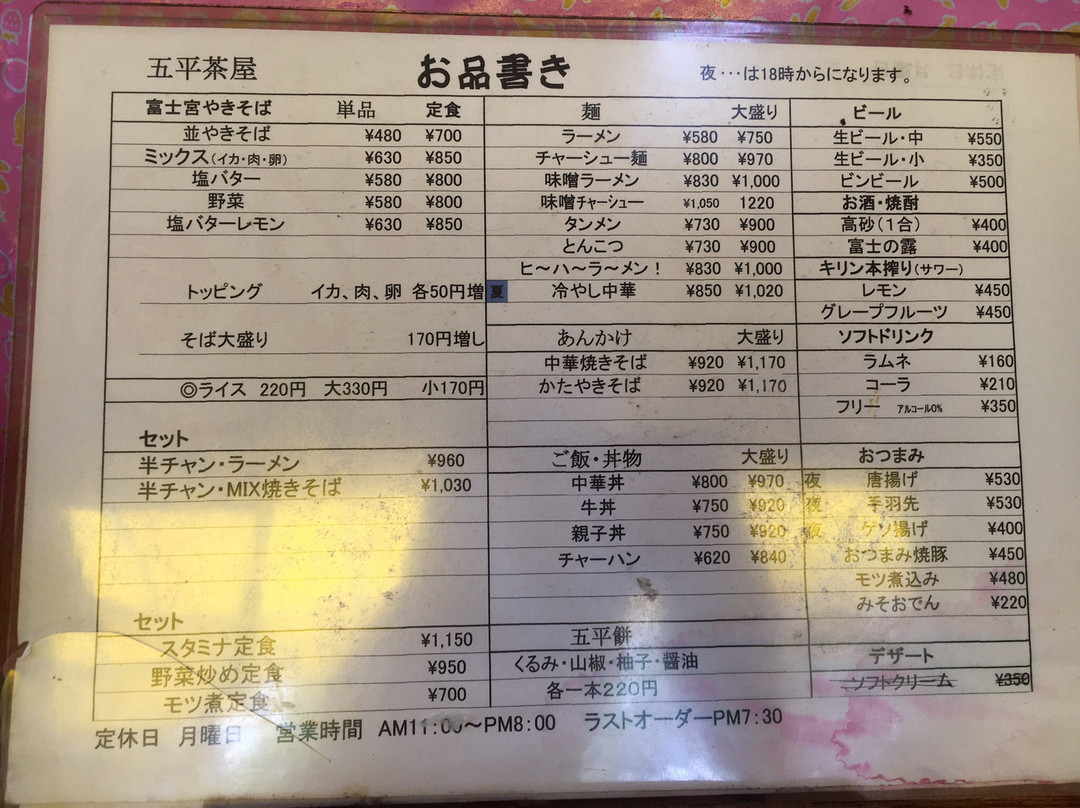 五平茶屋 お品書き 夜・・・は18時からになります。
富士宮やきそば 単品 定食
並やきそば ¥480 ¥700
ミックス(イカ・肉・卵) ¥630 ¥850
塩バター ¥580 ¥800
野菜 ¥580 ¥800
塩バターレモン ¥630 ¥850
トッピング イカ、肉、卵 各50円増
そば大盛り 170円増し
◎ライス 220円 大330円 小170円
セット
半チャン・ラーメン ¥960
半チャン・MIX焼きそば ¥1,030
セット
スタミナ定食 ¥1,150
野菜炒め定食 ¥950
モツ煮定食 ¥700
麺 大盛り
ラーメン ¥580 ¥750
チャーシュー麺 ¥800 ¥970
味噌ラーメン ¥830 ¥1,000
味噌チャーシュー ¥1,050 1220
タンメン ¥730 ¥900
とんこつ ¥730 ¥900
ヒ〜ハ〜ラ〜メン! ¥830 ¥1,000
夏 冷やし中華 ¥850 ¥1,020
あんかけ 大盛り
中華焼きそば ¥920 ¥1,170
かたやきそば ¥920 ¥1,170
ご飯・丼物 大盛り
中華丼 ¥800 ¥970
牛丼 ¥750 ¥920
親子丼 ¥750 ¥920
チャーハン ¥620 ¥840
五平餅
くるみ・山椒・柚子・醤油
各一本220円
ビール
生ビール・中 ¥550
生ビール・小 ¥350
ビンビール ¥500
お酒・焼酎
高砂(1合) ¥400
富士の露 ¥400
キリン本搾り(サワー)
レモン ¥450
グレープフルーツ ¥450
ソフトドリンク
ラムネ ¥160
コーラ ¥210
フリー アルコール0% ¥350
おつまみ
夜 唐揚げ ¥530
夜 手羽先 ¥530
夜 ゲソ揚げ ¥400
おつまみ焼豚 ¥450
モツ煮込み ¥480
みそおでん ¥220
デザート
ソフトクリーム ¥350
定休日 月曜日 営業時間 AM11:00〜PM8:00 ラストオーダーPM7:30